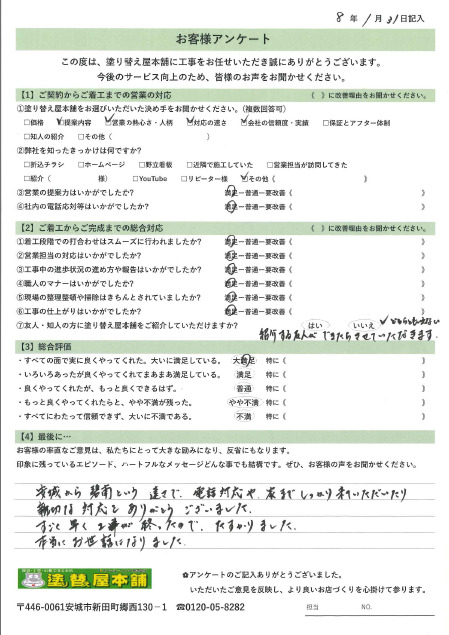 8年 1月31日記入
お客様アンケート
この度は、塗り替え屋本舗に工事をお任せいただき誠にありがとうございます。
今後のサービス向上のため、皆様のお声をお聞かせください。
【1】ご契約からご着工までの営業の対応 《 》に改善理由をお聞かせください。
①塗り替え屋本舗をお選びいただいた決め手をお聞かせください。(複数回答可)
□価格 ☑提案内容 ☑営業の熱心さ・人柄 ☑対応の速さ ☑会社の信頼度・実績 □保証とアフター体制
□知人の紹介 □その他( )
②弊社を知ったきっかけは何ですか?
□折込チラシ □ホームページ □野立看板 □近隣で施工していた □営業担当が訪問してきた
□紹介( 様) □YouTube □リピーター様 ☑その他( )
③営業の提案力はいかがでしたか? 満足ー普通ー要改善《 》
④社内の電話応対等はいかがでしたか? 満足ー普通ー要改善《 》
【2】ご着工からご完成までの総合対応 《 》に改善理由をお聞かせください。
①着工段階での打合わせはスムーズに行われましたか? 満足ー普通ー要改善《 》
②営業担当の対応はいかがでしたか? 満足ー普通ー要改善《 》
③工事中の進歩状況の進め方や報告はいかがでしたか? 満足ー普通ー要改善《 》
④職人のマナーはいかがでしたか? 満足ー普通ー要改善《 》
⑤現場の整理整頓や掃除はきちんとされていましたか? 満足ー普通ー要改善《 》
⑥工事の仕上がりはいかがでしたか? 満足ー普通ー要改善《 》
⑦友人・知人の方に塗り替え屋本舗をご紹介していただけますか? はい いいえ ✓どちらともいえない
紹介する友人ができたらさせていただきます。
【3】総合評価
・すべての面で実に良くやってくれた。大いに満足している。 大満足 特に《 》
・いろいろあったが良くやってくれてまあまあ満足している。 満足 特に《 》
・良くやってくれたが、もっと良くできるはず。 普通 特に《 》
・もっと良くやってくれたらと、やや不満が残った。 やや不満 特に《 》
・すべてにわたって信頼できず、大いに不満である。 不満 特に《 》
【4】最後に…
お客様の率直なご意見は、私たちにとって大きな励みになり、反省にもなります。
印象に残っているエピソード、ハートフルなメッセージどんな事でも結構です。ぜひ、お客様の声をお聞かせください。
安城から碧南という遠さで、電話対応や、友までしっかり来ていただいたり
親切な対応をありがとうございました。
すごく早く工事が終ったので、たすかりました。
本当にお世話になりました。
塗り替え屋本舗
✿アンケートのご記入ありがとうございました。
いただいたご意見を反映し、より良いお店づくりを心掛けて参ります。
〒446-0061安城市新田町郷西130-1 ☎0120-05-8282
担当 NO.